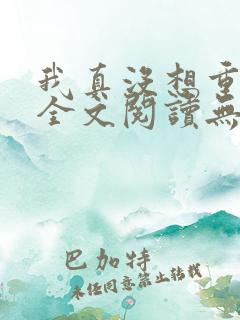 我真没想重
全文閱讀無
巴加特
未经同意禁止转载